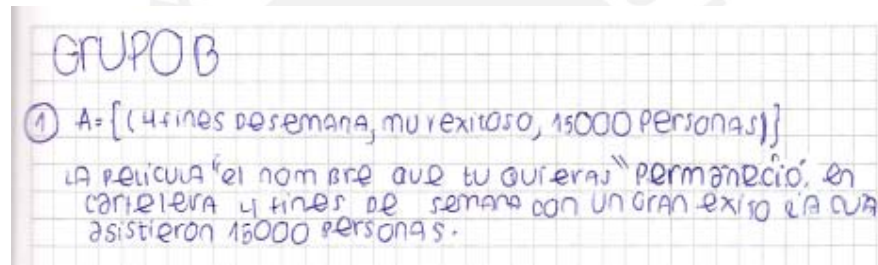 GRUPO B
① A={(4 fines de semana, muy exitoso, 15000 personas)}
LA película "el nombre que tu quieras" permaneció en
cartelera 4 fines de semana con un gran exiso
asistieron 15000 personas.